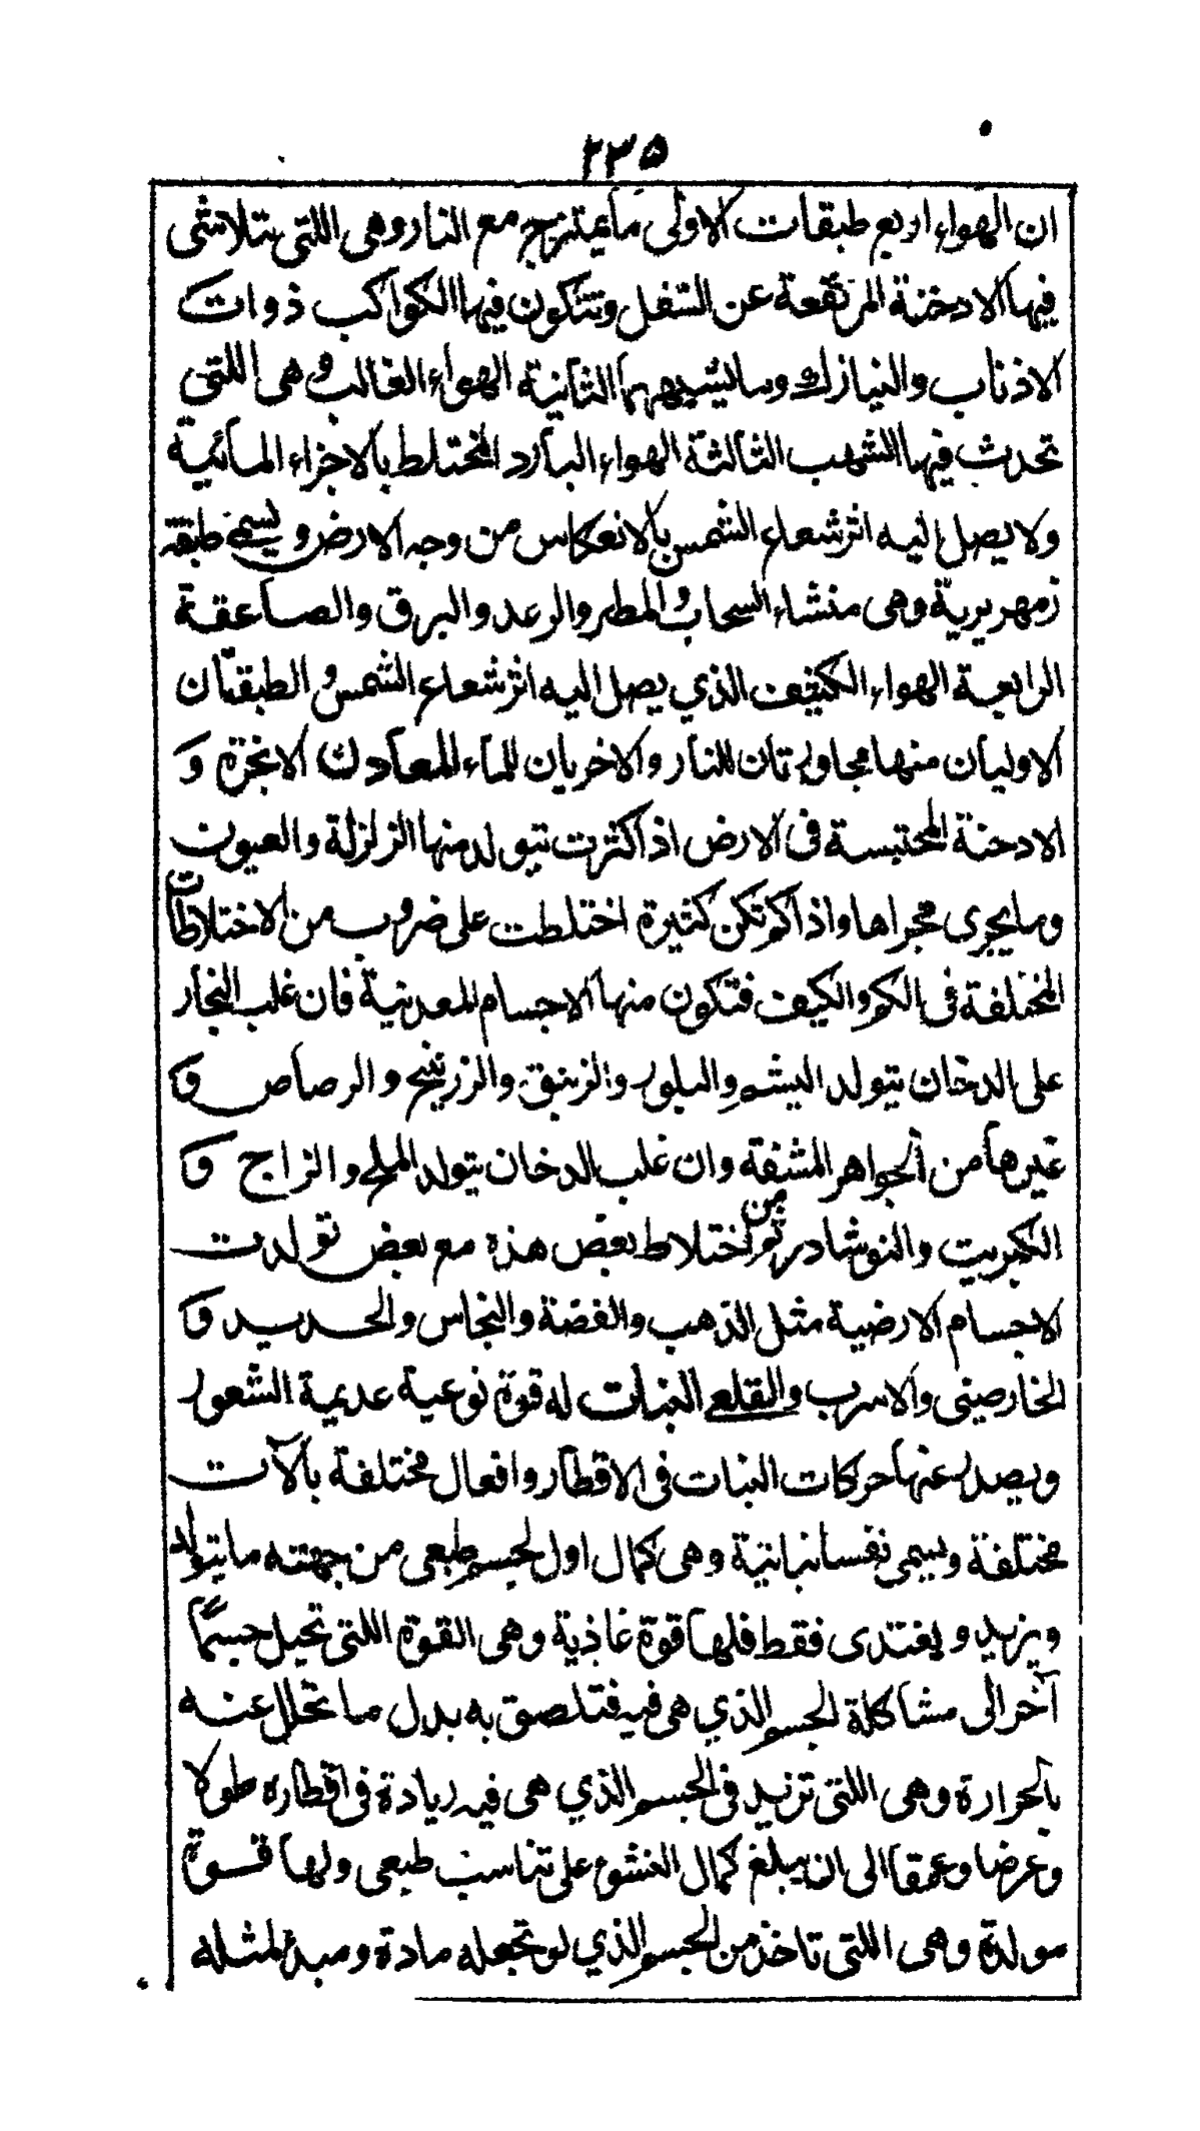 ٢٣٥
ان الهواء اربع طبقات الاولى ما يمتزج مع النار وهى اللتى يتلاشى
فيها الادخنة المرتفعة عن السفل وتتكون فيها الكواكب ذوات
الاذناب والنيازك وما يشبهها الثانية الهواء الغالب وهى اللتى
تحدث فيها الشهب الثالثة الهواء البارد المختلط بالاجزاء المائية
ولا يصل اليه اثر شعاع الشمس بالانعكاس من وجه الارض ويسمى طبقه
زمهريرية وهى منشاء السحاب والمطر والرعد والبرق والصاعقة
الرابعة الهواء الكثيف الذي يصل اليه اثر شعاع الشمس والطبقتان
الاوليان منها مجاورتان للنار والاخريان للماء المعادن الابخرة و
الادخنة المحتبسة فى الارض اذ اكثرت تتولد منها الزلزلة والعيون
وما يجرى مجراها واذا لم تكن كثيرة اختلطت على ضروب من الاختلاطات
المختلفة فى الكم والكيف فتكون منها الاجسام المعدنية فان غلب البخار
على الدخان يتولد اليشم والبلور والزيبق والزرنيخ والرصاص و
غيرها من الجواهر المشفة وان غلب الدخان يتولد الملح والزاج و
الكبريت والنوشادر ثم من اختلاط بعض هذه مع بعض تولدت
الاجسام الارضية مثل الذهب والفضة والنحاس والحديد و
الخارصينى والاسرب والقلعى النبات له قوة نوعية عديمة الشعور
ويصدر عنها حركات النبات فى الاقطار وافعال مختلفة بالآت
مختلفة ويسمى نفسا نباتية وهى كمال اول لجسم طبعى من جهته ما يتولد
ويزيد ويغتذى فقط فلها قوة غاذية وهى القوة اللتى تحيل جسمًا
آخر الى مشاكلة الجسم الذي هى فيه فتلصق به بدل ما تحلل عنه
بالحرارة وهى اللتى تزيد فى الجسم الذي هى فيه زيادة فى اقطاره طولا
وعرضا وعمقا الى ان يبلغ كمال النشو على تناسب طبعى ولها قوة
مولدة وهى اللتى تاخذ من الجسم الذي لو تجعله مادة ومبدء لمثله